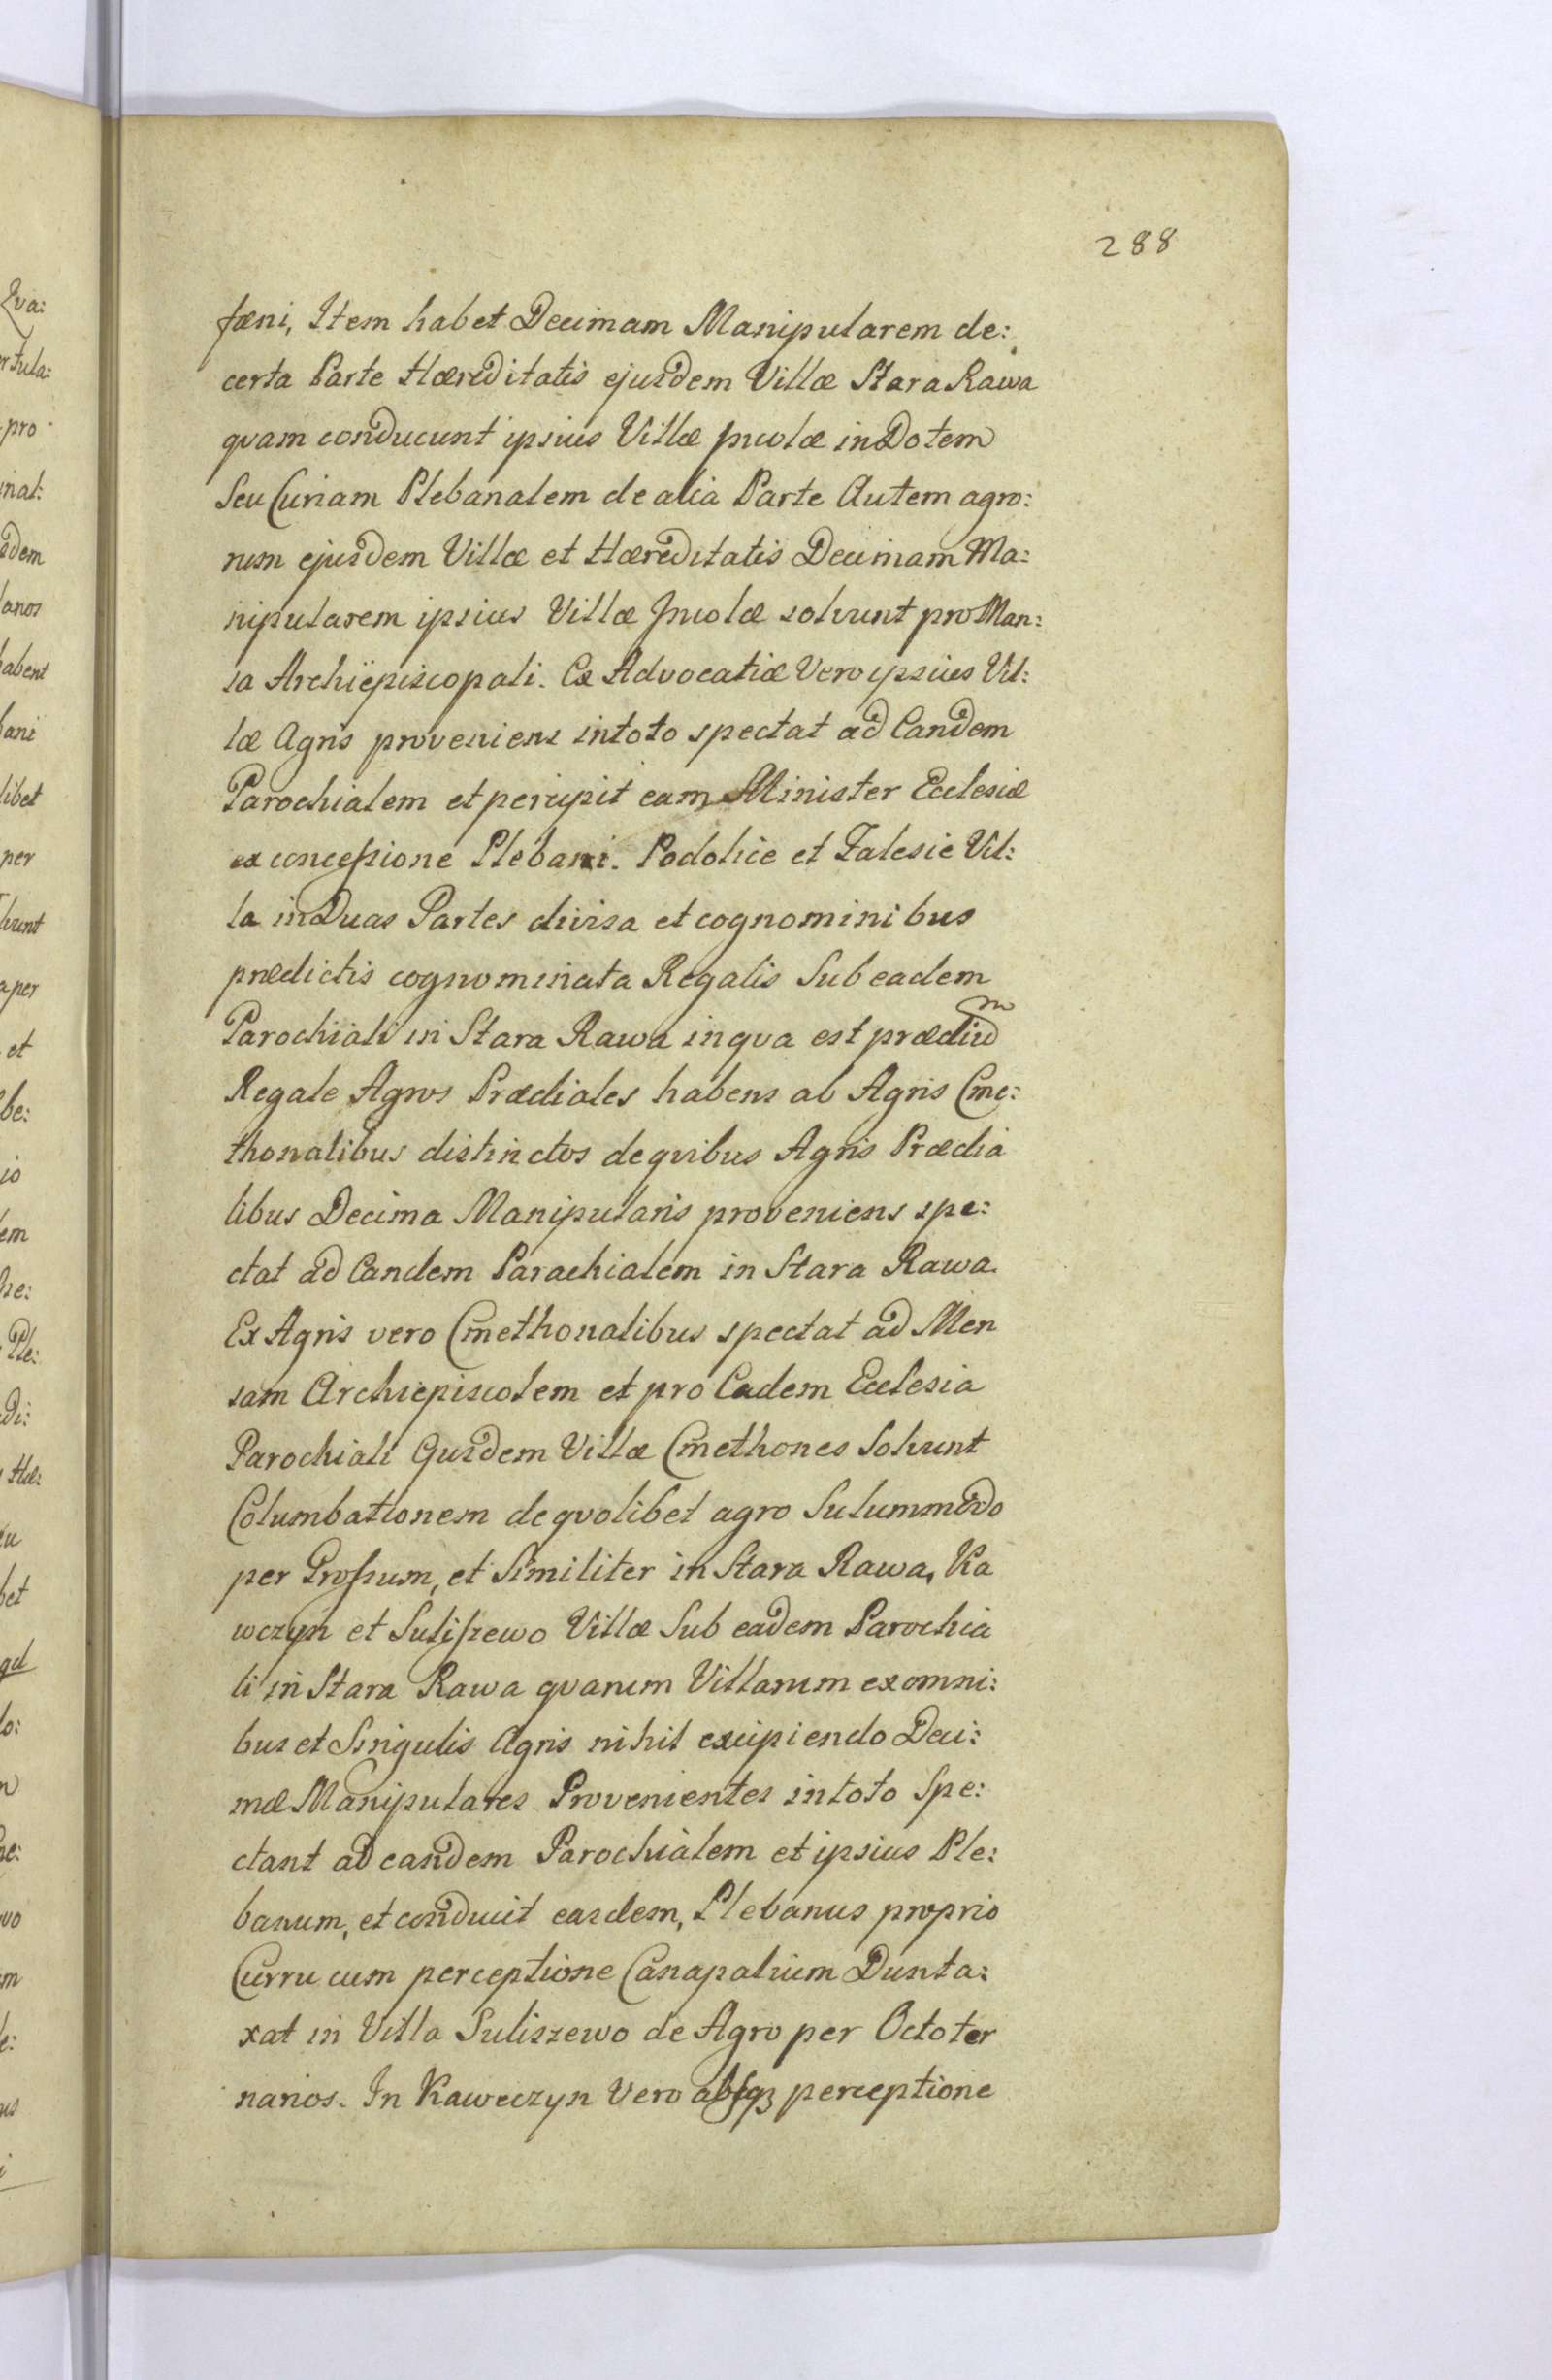 288
fæni, Item habet Decimam Manipularem de:
certa Parte Hæreditatis ejusdem Villæ Stara Rawa
qvam conducunt ipsius Villæ Jncolæ in Dotem
Seu Curiam Plebanalem de alia Parte Autem agro:
rum ejusdem Villæ et Hæreditatis Decimam Ma:
nipularem ipsius Villæ Jncolæ solvunt pro Man:
sa Archiepiscopali. Ex Advocatiæ Vero ipsius Vil:
læ Agris proveniens in toto spectat ad Eandem
Parochialem et percipit eam Minister Ecclesiæ
ex concessione Plebani. Podolice et Zalesie Vil:
la in Duas Partes divisa et cognominibus
prædictis cognominata Regalis Sub eadem
Parochiali in Stara Rawa in qva est prædium
Regale Agros Prædiales habens ab Agris Cme:
thonalibus distinctos de qvibus Agris Prædia
libus Decima Manipularis proveniens spe:
ctat ad Eandem Parachialem in Stara Rawa.
Ex Agris vero Cmethonalibus spectat ad Men
sam Archiepiscolem et pro Eadem Ecclesia
Parochiali Ejusdem Villæ Cmethones Solvunt
Columbationem de qvolibet agro Sulummodo
per Grossum, et Similiter in Stara Rawa, Ka
wczyn et Suliszewo Villæ Sub eadem Parochia
li in Stara Rawa qvarum Villarum ex omni:
bus et Singulis Agris nihil excipiendo Deci:
mæ Manipulares Provenientes in toto Spe:
ctant ad eandem Parochialem et ipsius Ple:
banum, et conducit easdem, Plebanus proprio
Curru cum perceptione Canapalium Dunta:
xat in Villa Suliszewo de Agro per Octo ter
narios. In Kaweczyn Vero absqꝫ perceptione